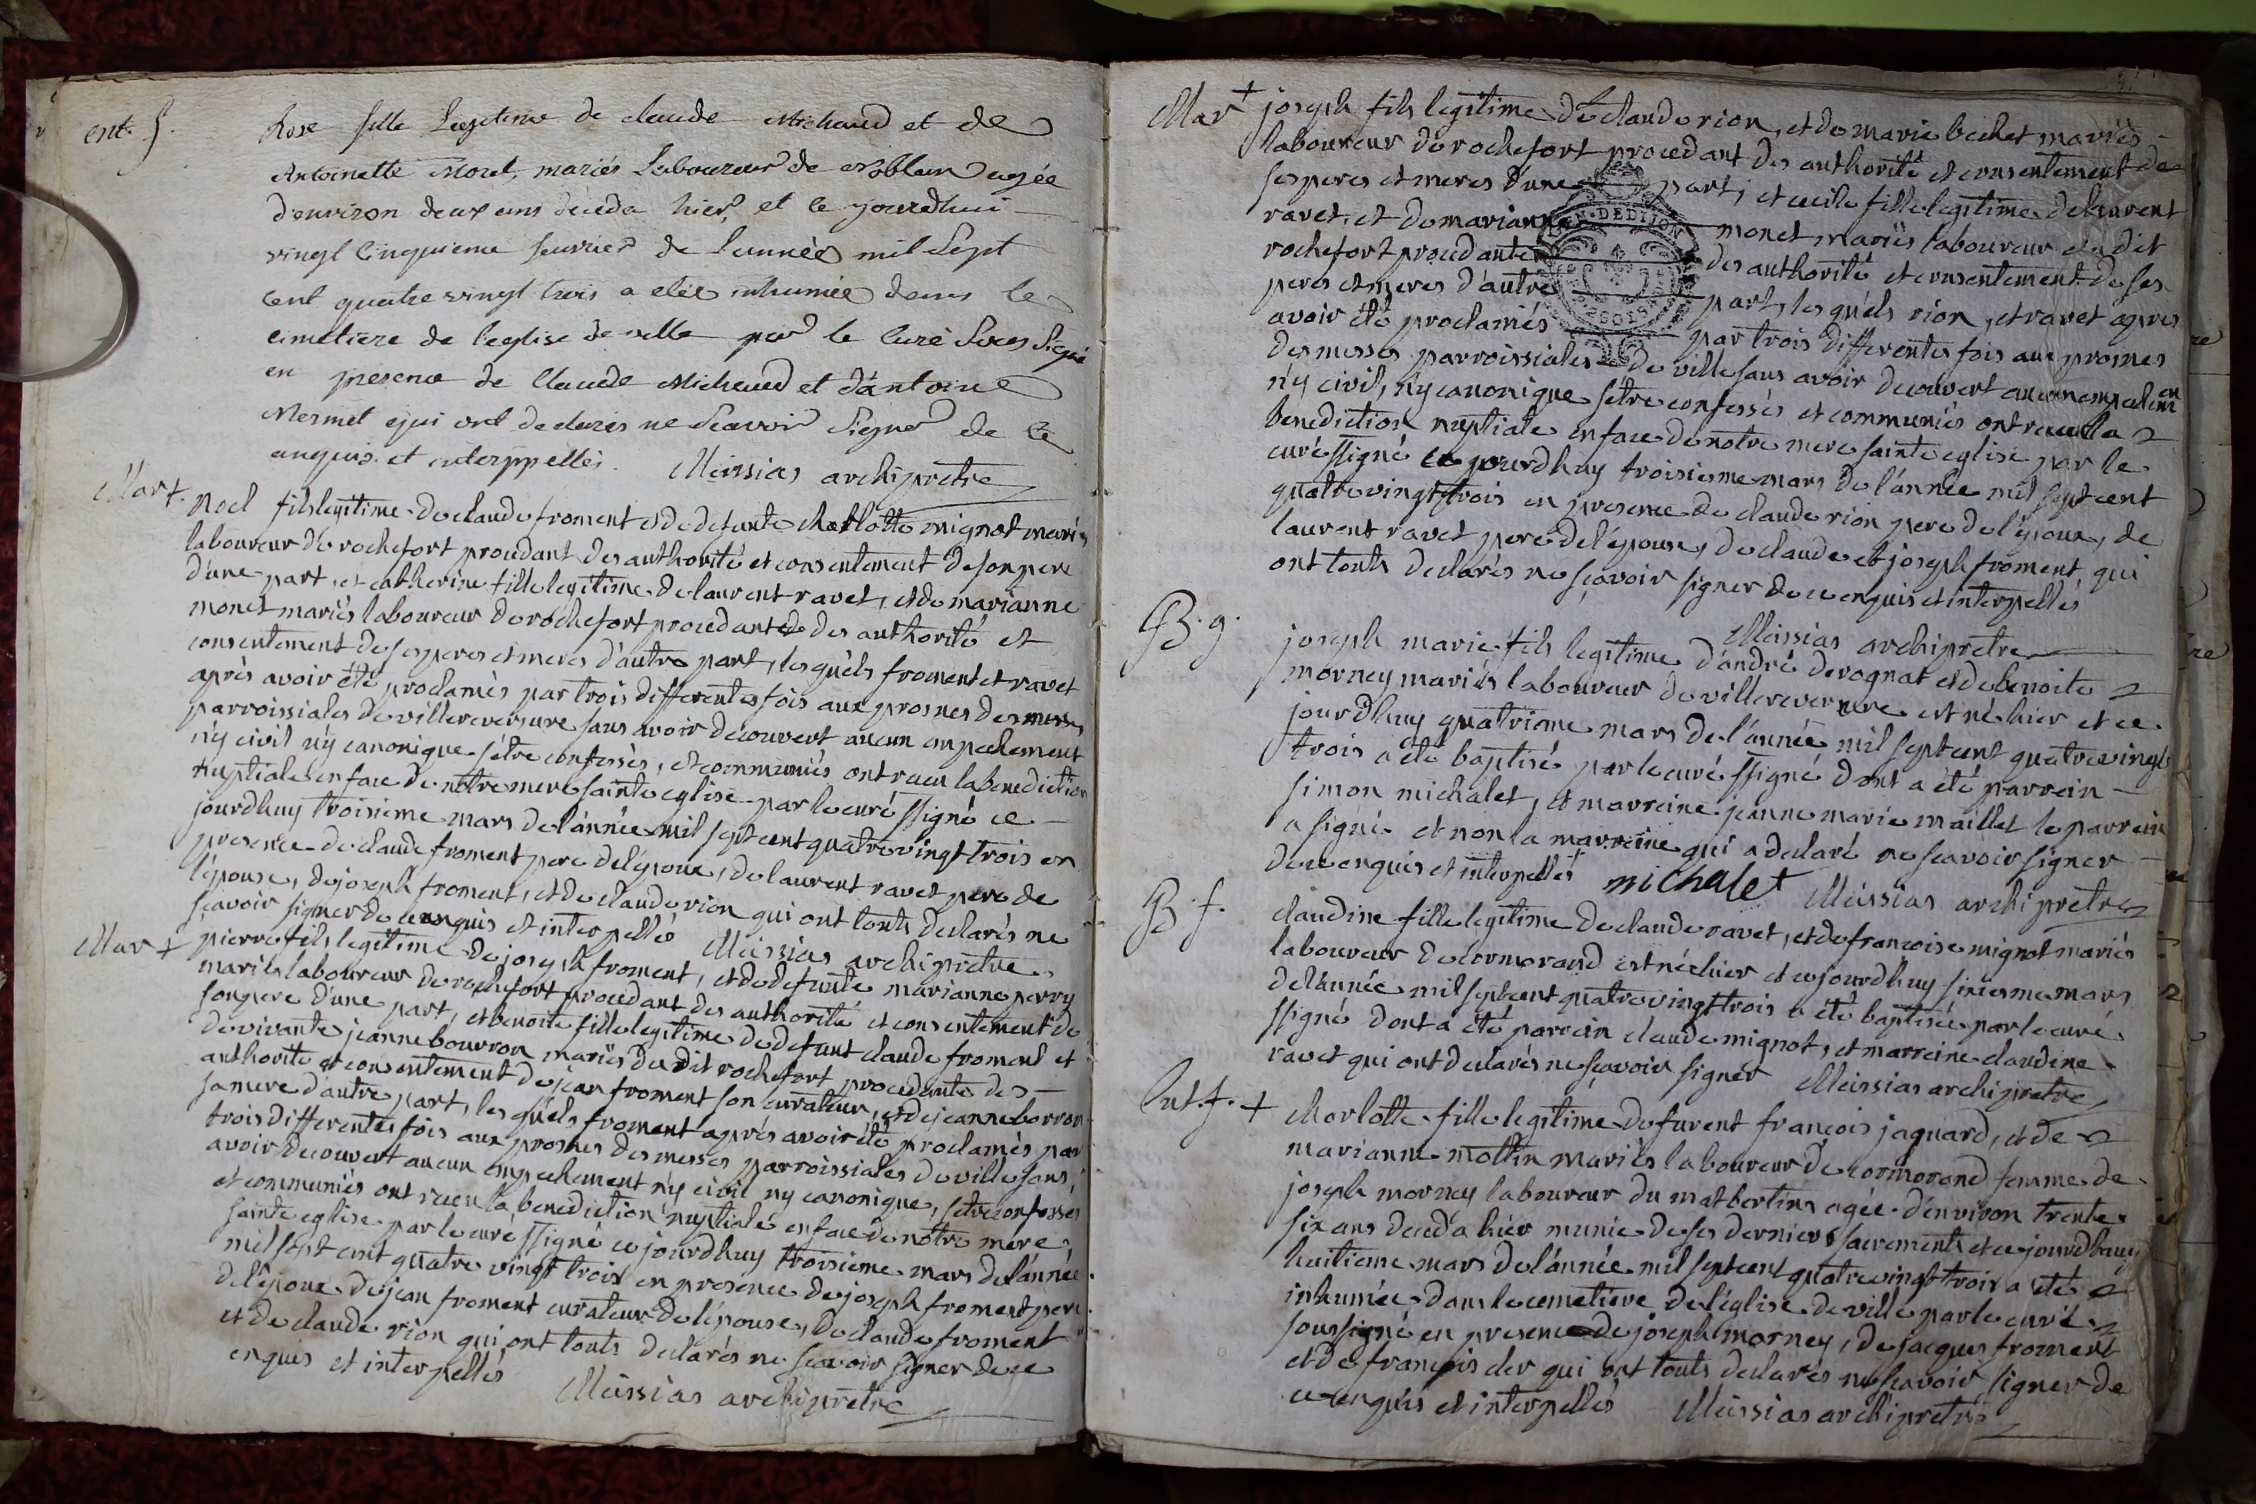 ent. f.
Rose fille Legitime de claude Michaud et de
Antoinette Morel, mariés Laboureur de Noblan agée
d'environ deux ans décéda hier, et le jourd'hui
vingt cinquieme fevrier de L'année mil Sept
cent quatre vingt trois a etée inhumée dans le
cimetiere de l'eglise de ville par le Curé Sous Signé
en presence de Claude Michaud et d'antoine
Mermet qui ont declarés ne Scavoir Signer de ce
enquis et interppellés. Meissias archipretre
Mar +.
Noel fils legitime de claude froment et de defunte charlotte mignot mariés
laboureur de rochefort procedant des authorité et consentement de son pere
d'une part, et catherine fille legitime de laurent ravet, et de marianne
monet mariés laboureur de rochefort procedante des authorité et
consentement de ses peres et meres d'autre part, les quels froment et ravet
après avoir été proclamés par trois differentes fois aux prosnes des messes
parroissiales de villereversure sans avoir decouvert aucun empechement
n'y civil n'y canonique s'être confessés, et communiés ont recu la benediction
nuptiale en face de nôtre mere sainte eglise par le curé ssigné ce
jourdhuy troisieme mars de l'année mil sept cent quatre vingt trois en
presence de claude froment pere de l'époux, de laurent ravet pere de
l'épouse, de joseph froment, et de claude rion qui ont touts declarés ne
sçavoir signer de ce enquis et interpellés Meissias archipretre
Mar +
pierre fils legitime de joseph froment, et de defunte marianne perry
mariés laboureur de rochefort procedant des authorité et consentement de
son pere d'une part, et benoite fille legitime de defunt claude froment et
de vivante jeanne bourron mariés du dit rochefort procedante des
authorité et consentement de jean froment son curateur, et de jeanne borron
sa mere d'autre part, les quels froment après avoir été proclamés par
trois differentes fois aux prosnes des messes parroissiales de ville sans
avoir decouvert aucun empechement n'y civil ny canonique, s'être confessés
et communiés ont recu la benediction nuptiale en face de nôtre mere
sainte eglise par le curé ssigné ce jourdhuy troisieme mars de l'année
mil sept cent quatre vingt trois en presence de joseph froment pere
de l'époux de jean froment curateur de l'épouse, de claude froment
et de claude rion qui ont touts declarés ne scavoir signer de ce
enquis et interpellés Meissias archipretre
Mar +
joseph fils legitime de claude rion, et de marie bechet mariés
laboureur de rochefort procedant des authorité et consentement de
ses peres et meres d'une part, et cecile fille legitime de laurent
ravet, et de marianne monet mariés laboureur du dit
rochefort procedante des authorité et consentement de ses
peres et meres d'autre part, les quels rion, et ravet apres
avoir été proclamés par trois differentes fois aux prosnes
des messes parroissiales de ville sans avoir decouvert aucun empechement
n'y civil, n'y canonique s'être confessés et communiés ont recu la
benediction nuptiale en face de notre mere sainte eglise par le
curé ssigné ce jourdhuy troisieme mars de l'année mil sept cent
quatre vingt trois en presence de claude rion pere de l'époux, de
laurent ravet pere de l'épouse, de claude et joseph froment qui
ont touts declarés ne sçavoir signer de ce enquis et interpellés
Meissias archipretre
B. g.
joseph marie fils legitime d'andré derognat et de benoite
morney mariés laboureur de villereversure est né hier et ce
jourdhuy quatrieme mars de l'année mil sept cent quatre vingt
trois a été baptisé par le curé ssigné dont a été parrein
simon michalet, et marreine jeanne marie maillet le parrein
a signé et non la marreine qui a declaré ne scavoir signer
de ce enquis et interpellés michalet Meissias archipretre
B. f.
claudine fille legitime de claude ravet, et de francoise mignot mariés
laboureur de cormorand est née hier et ce jourdhuy sixieme mars
de l'année mil sept cent quatre vingt trois a été baptisée par le curé
ssigné dont a été parrein claude mignot, et marreine claudine
ravet qui ont declarés ne sçavoir signer Meissias archipretre
Ent. f. +
charlotte fille legitime de furent francois jaquard, et de
marianne mottin mariés laboureur de cormorand femme de
joseph morney laboureur du mat bertins agée d'environ trente
six ans deceda hier munie de ses derniers sacrements et ce jourdhuy
huitieme mars de l'année mil sept cent quatre vingt trois a été
inhumée dans le cemetiere de l'église de ville par le curé
soussigné en presence de joseph morney, de jacques froment
et de francois der qui ont touts declarés ne scavoir signer de
ce enquis et interpellés Meissias archipretre